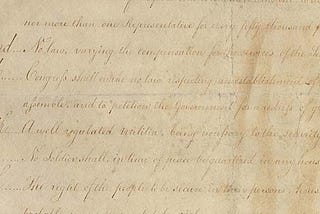 nor more than one Representative for every fifty thousand
No law, varying the compensation for the services of the
Congress shall make no law respecting an establishment of
assemble, and to petition the Government for a redress of
A well regulated militia, being necessary to the security
No soldier shall, in time of peace be quartered in any house
The right of the people to be secure in their persons, hous